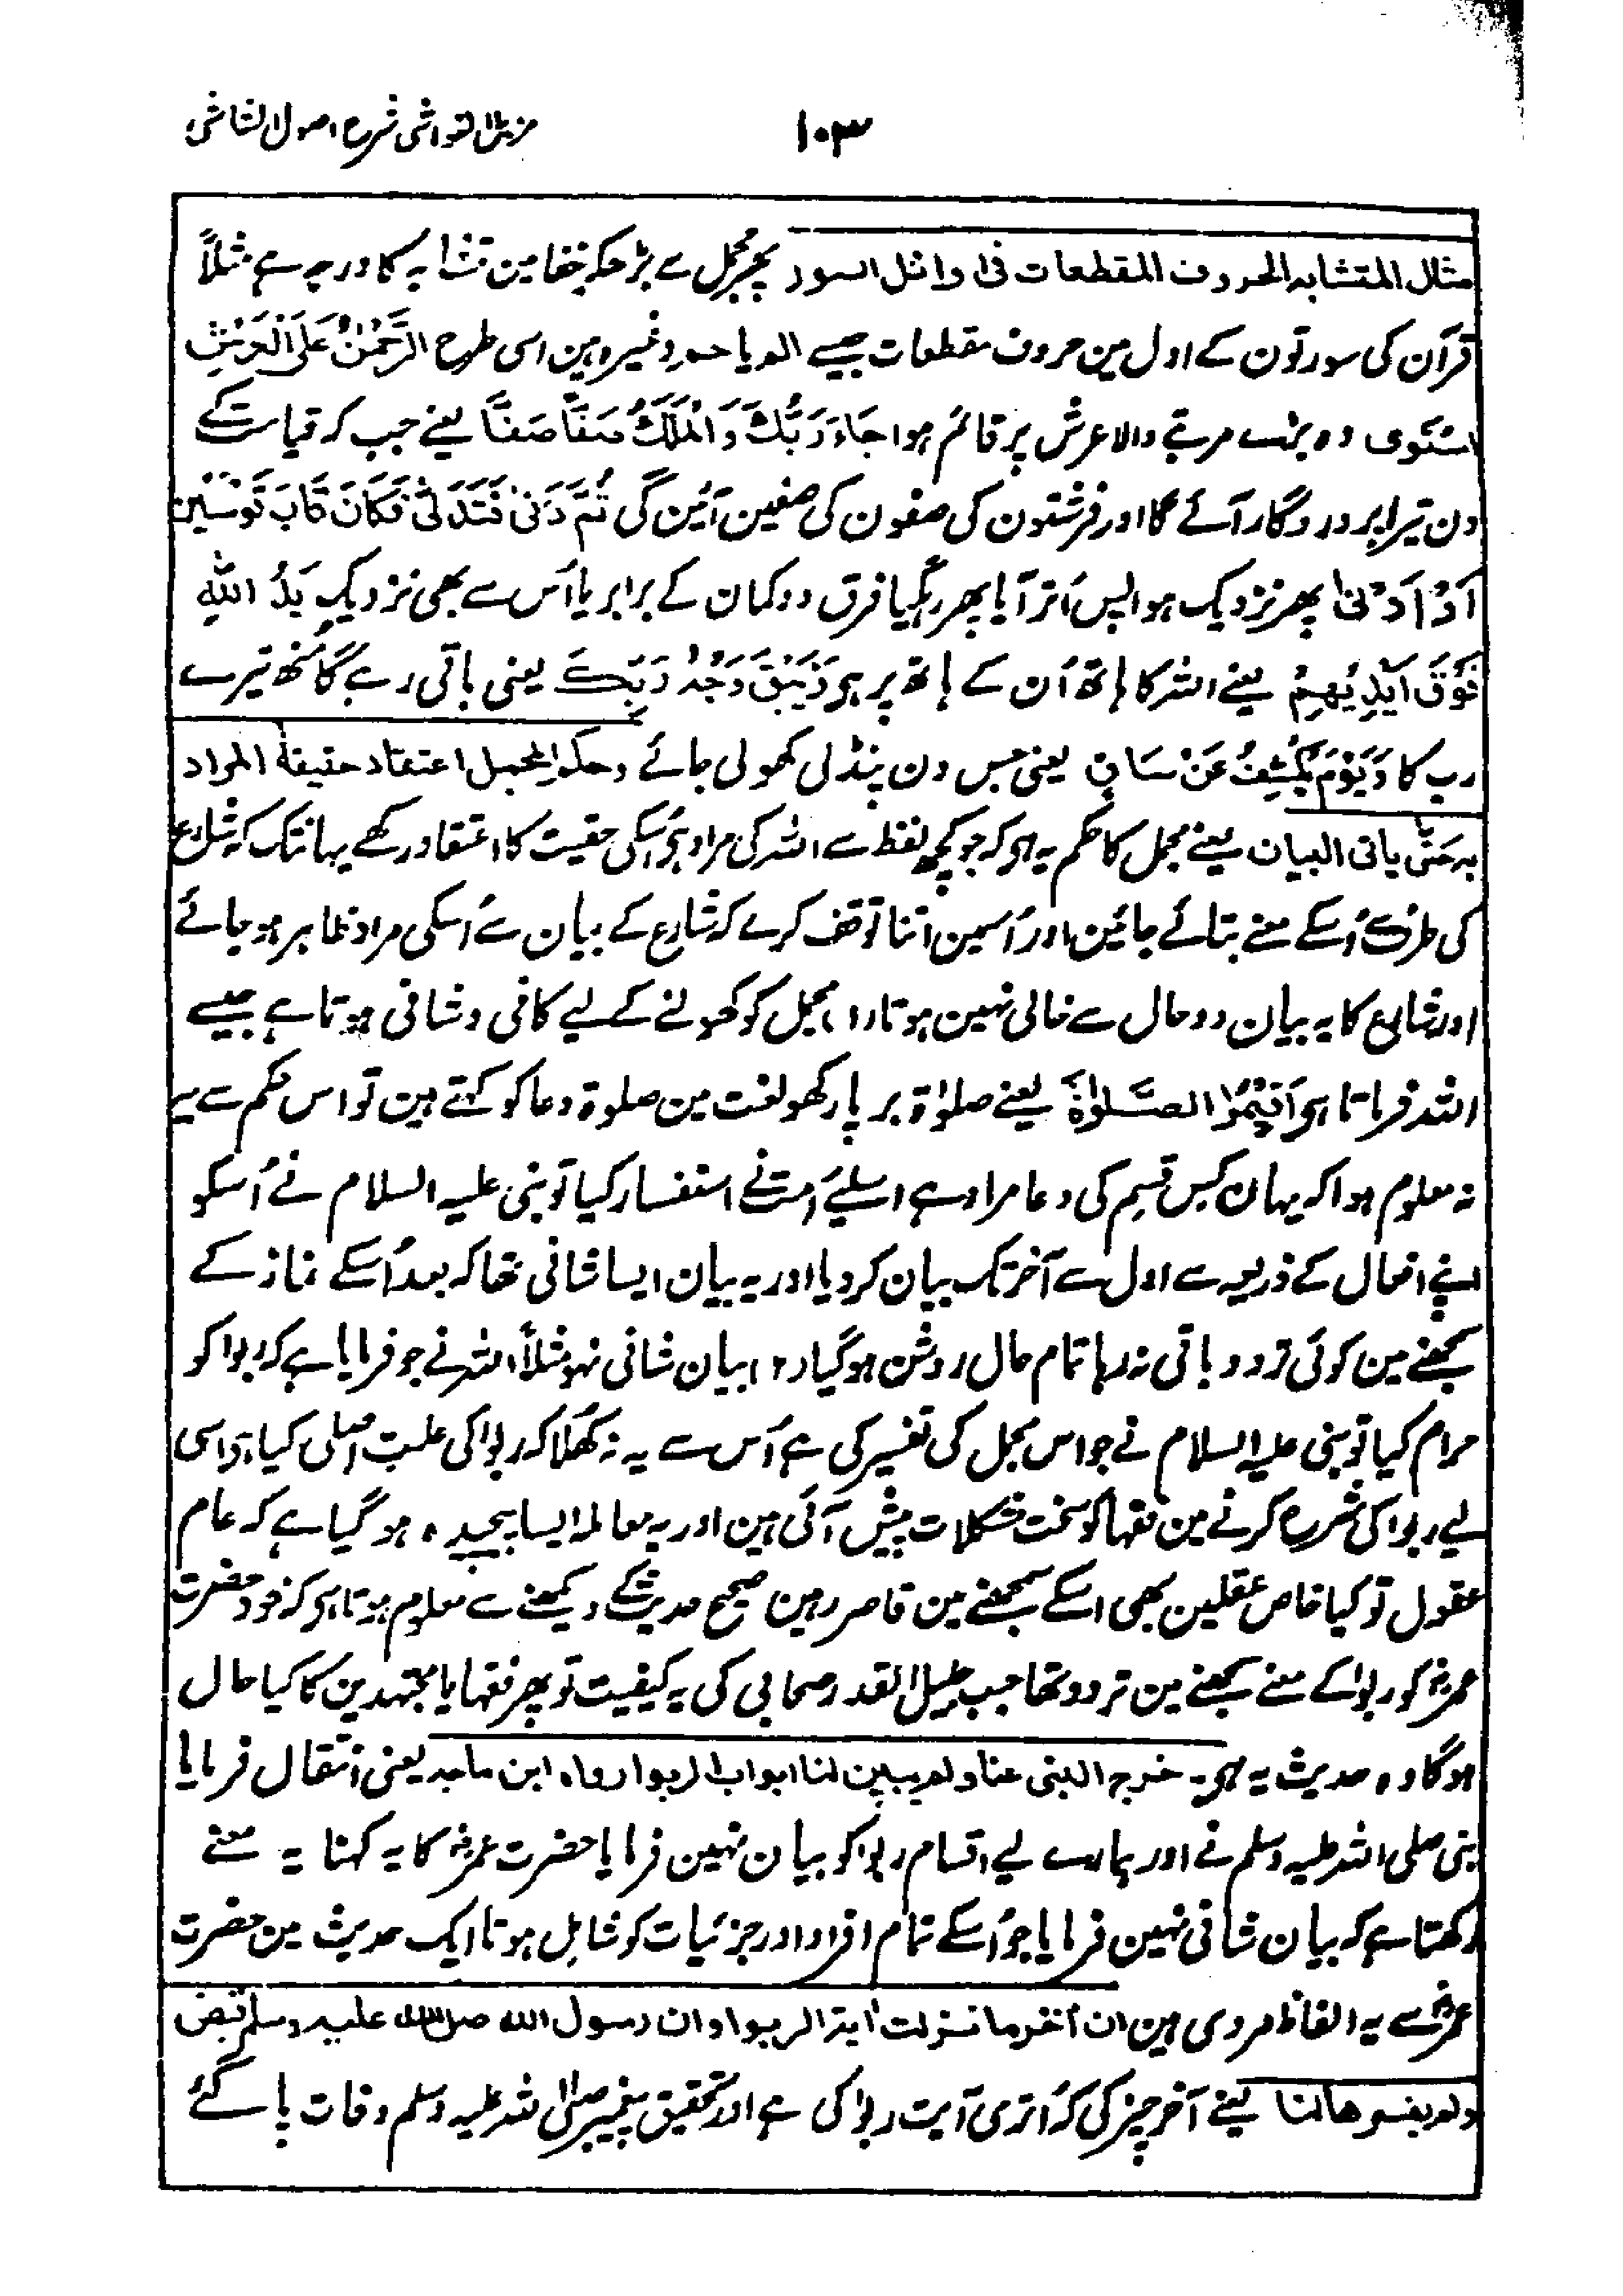 مزیل الغواشی شرح اصول الشاشی
۱۰۳
مثال المتشابہ الحروف المقطعات فی اوائل السور پھر مجمل سے بڑھکر خفا مین متشابہ کا درجہ ہے مثلاً
قرآن کی سورتون کے اول مین حروف مقطعات جیسے الم یا حم وغیرہ ہین اسی طرح اَلرَّحْمٰنُ عَلَی الْعَرْشِ
اسْتَوٰی وہ بڑے مرتبے والا عرش پر قائم ہوا جَاءَ رَبُّکَ وَالْمَلَکُ صَفًّا صَفًّا یعنے جب کہ قیامت کے
دن تیرا پروردگار آئے گا اور فرشتون کی صفون کی صفین آئین گی ثُمَّ دَنٰی فَتَدَلّٰی فَکَانَ قَابَ قَوْسَیْنِ
اَوْ اَدْنٰی پھر نزدیک ہوا پس اُتر آیا پھر رہگیا فرق دو کمان کے برابر یا اُس سے بھی نزدیک یَدُ اللّٰہِ
فَوْقَ اَیْدِیْہِمْ یعنے اللہ کا ہاتھ اُن کے ہاتھ پر ہی وَیَبْقٰی وَجْہُ رَبِّکَ یعنی باقی رہے گا مُنھ تیرے
رب کا وَیَوْمَ یُکْشَفُ عَنْ سَاقٍ یعنی جس دن پنڈلی کھولی جائے وحکم المجمل اعتقاد حقیقۃ المراد
بہ حَتّٰی یاتی البیان یعنے مجمل کا حکم یہ ہی کہ جو کچھ لفظ سے اللہ کی مراد ہی اُسکی حقیت کا اعتقاد رکھے یہانتک کہ شارع
کی طرف سے اُسکے معنے بتائے جائین اور اُسمین اتنا توقف کرے کہ شارع کے بیان سے اُسکی مراد ظاہر ہو جائے
اور شارع کا یہ بیان دو حال سے خالی نہین ہوتا (۱) مجمل کو کھولنے کے لیے کافی و شافی ہوتا ہے جیسے
اللہ فرماتا ہی اَقِیْمُوا الصَّلٰوۃَ یعنے صلوٰۃ برپا رکھو لغت مین صلوۃ دعا کو کہتے ہین تو اس حکم سے یہ
نہ معلوم ہوا کہ یہان کس قسم کی دعا مراد ہے اسلیے اُمت نے استفسار کیا تو نبی علیہ السلام نے اُسکو
اپنے افعال کے ذریعہ سے اول سے آخر تک بیان کر دیا اور یہ بیان ایسا شافی تھا کہ بعد اُسکے نماز کے
سمجھنے مین کوئی تردد باقی نہ رہا تمام حال روشن ہو گیا (۲) بیان شافی نہو مثلاً اللہ نے جو فرمایا ہے کہ ربوا کو
حرام کیا تو نبی علیہ السلام نے جو اس مجمل کی تفسیر کی ہے اُس سے یہ نہ کھُلا کہ ربوا کی علت اصلی کیا ہی اسی
لیے ربوا کی شرح کرنے مین فقہا کو سخت مشکلات پیش آئی ہین اور یہ معاملہ ایسا پیچیدہ ہو گیا ہے کہ عام
عقول تو کیا خاص عقلین بھی اسکے سمجھنے مین قاصر رہین صحیح حدیث کے دیکھنے سے معلوم ہوتا ہی کہ خود حضرت
عمرؓ کو ربوا کے معنے سمجھنے مین تردد تھا جب جلیل القدر صحابی کی یہ کیفیت تو پھر فقہا یا مجتہدین کا کیا حال
ہوگا وہ حدیث یہ ہی۔ خرج النبی عنا ولم یبین لنا ابواب الربوا رواہ ابن ماجہ یعنی انتقال فرمایا
نبی صلی اللہ علیہ وسلم نے اور ہمارے لیے اقسام ربوا کو بیان نہین فرمایا حضرت عمرؓ کا یہ کہنا یہ معنے
رکھتا ہے کہ بیان شافی نہین فرمایا جو اُسکے تمام افراد اور جزئیات کو شامل ہوتا ایک حدیث مین حضرت
عمرؓ سے یہ الفاظ مروی ہین ان آخر ما نزلت اٰیۃ الربوا وان رسول اللہ صلی اللہ علیہ وسلم قبض
ولم یفسرھا لنا یعنے آخر چیز کی کہ اُتری آیت ربوا کی ہے اور تحقیق پیغمبر صلی اللہ علیہ وسلم وفات پا گئے